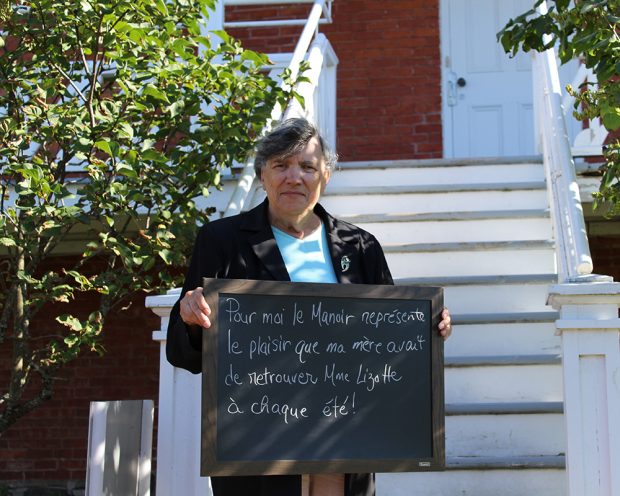 Pour moi le Manoir représente
le plaisir que ma mère avait
de retrouver Mme Lizotte
à chaque été!